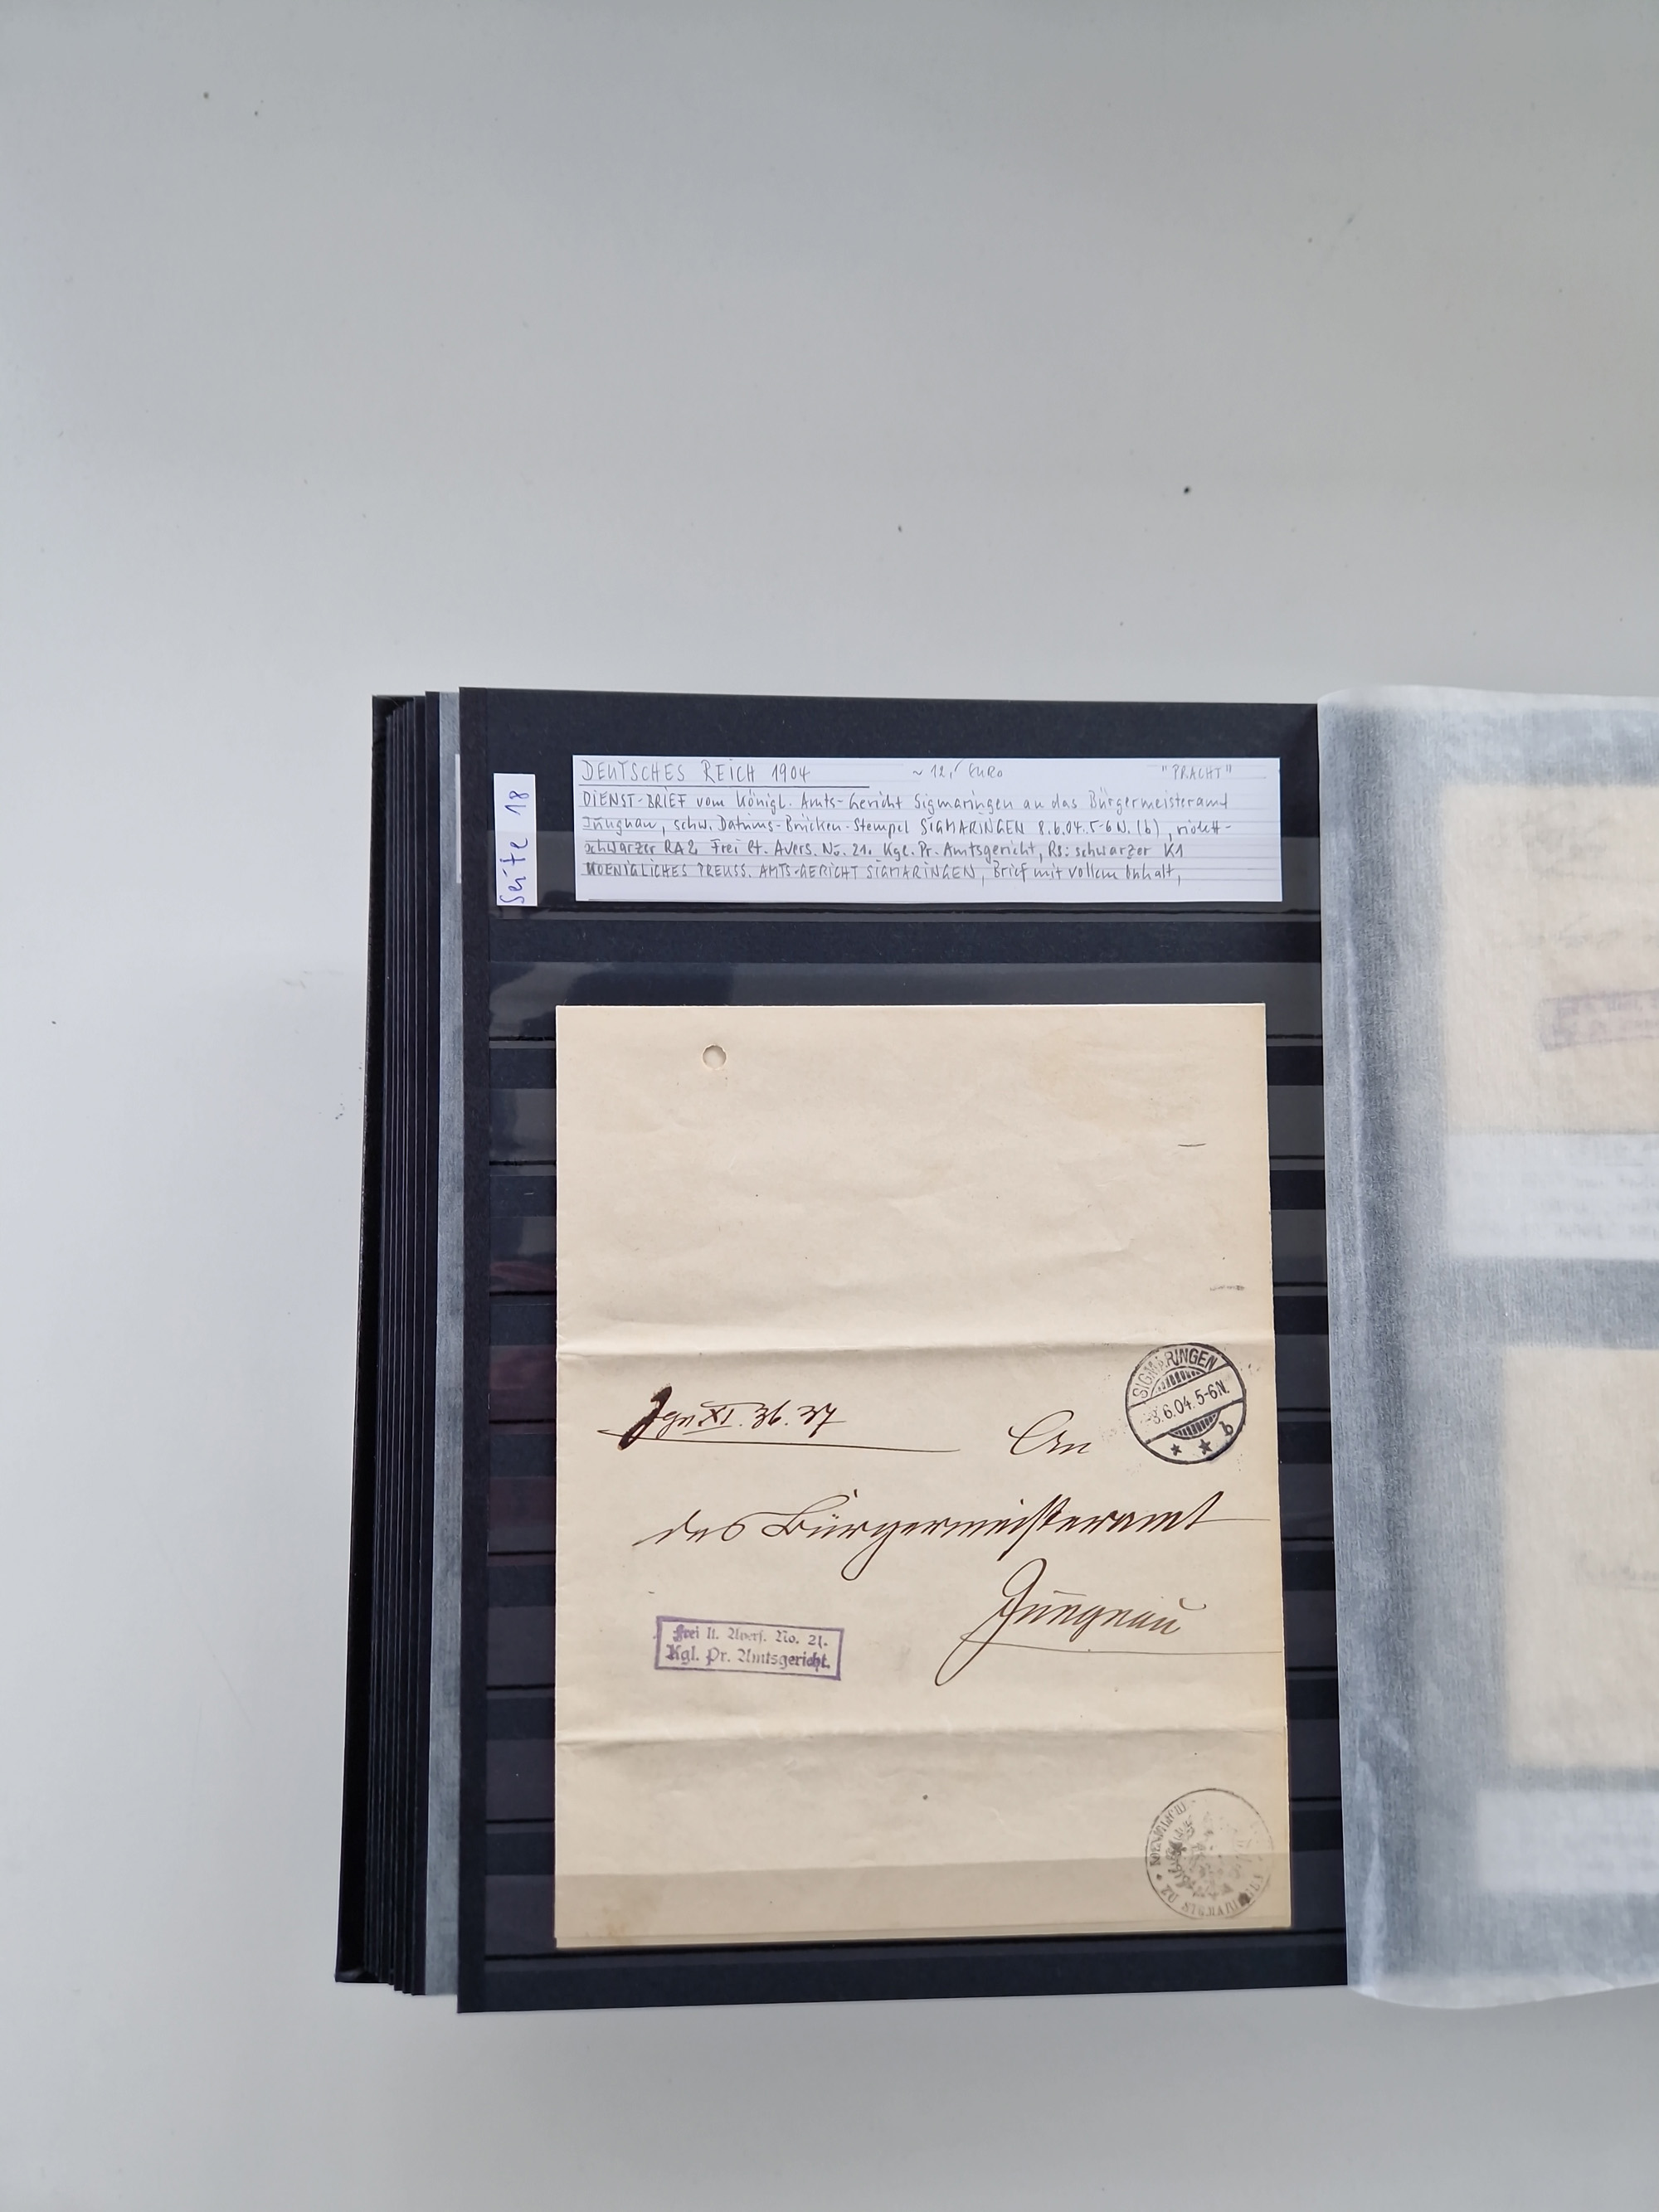 Seite 18
DEUTSCHES REICH 1904 ~ 12,- EURO "PRACHT"
DIENST-BRIEF vom Königl. Amts-Gericht Sigmaringen an das Bürgermeisteramt
Jungnau, schw. Datums-Brücken-Stempel SIGMARINGEN 8.6.04.5-6 N. (b), violett-
schwarzer RA2 Frei lt. Avers. No. 21. Kgl. Pr. Amtsgericht, Rs: schwarzer K1
KOENIGLICHES PREUSS. AMTS-GERICHT SIGMARINGEN, Brief mit vollem Inhalt,
SIGMARINGEN
8.6.04.5-6N.
* * b
XI. 36. 37
An
das Bürgermeisteramt
Jungnau
Frei lt. Avers. No. 21.
Kgl. Pr. Amtsgericht.